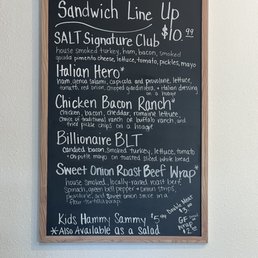 Sandwich Line Up
$10.99
SALT Signature Club
house smoked turkey, ham, bacon, smoked
gouda pimento cheese, lettuce, tomato, pickles, mayo
Italian Hero*
ham, genoa salami, capicola and provolone, lettuce,
tomato, red onion, chopped giardiniera, + Italian dressing
on a hoagie
Chicken Bacon Ranch*
chicken, bacon, cheddar, romaine lettuce,
choice of traditional ranch or buffalo ranch, and
fried pickle chips on a hoagie
Billionaire BLT
candied bacon, smoked turkey, lettuce, tomato
+ chipotle mayo on toasted sliced white bread
Sweet Onion Roast Beef Wrap*
house smoked, locally-raised roast beef,
spinach, green bell pepper + onion strips,
and sweet onion sauce in a
flour tortilla wrap
Double Meat
$3.00
GF
Kids Hammy Sammy $5
*Also Available as a salad